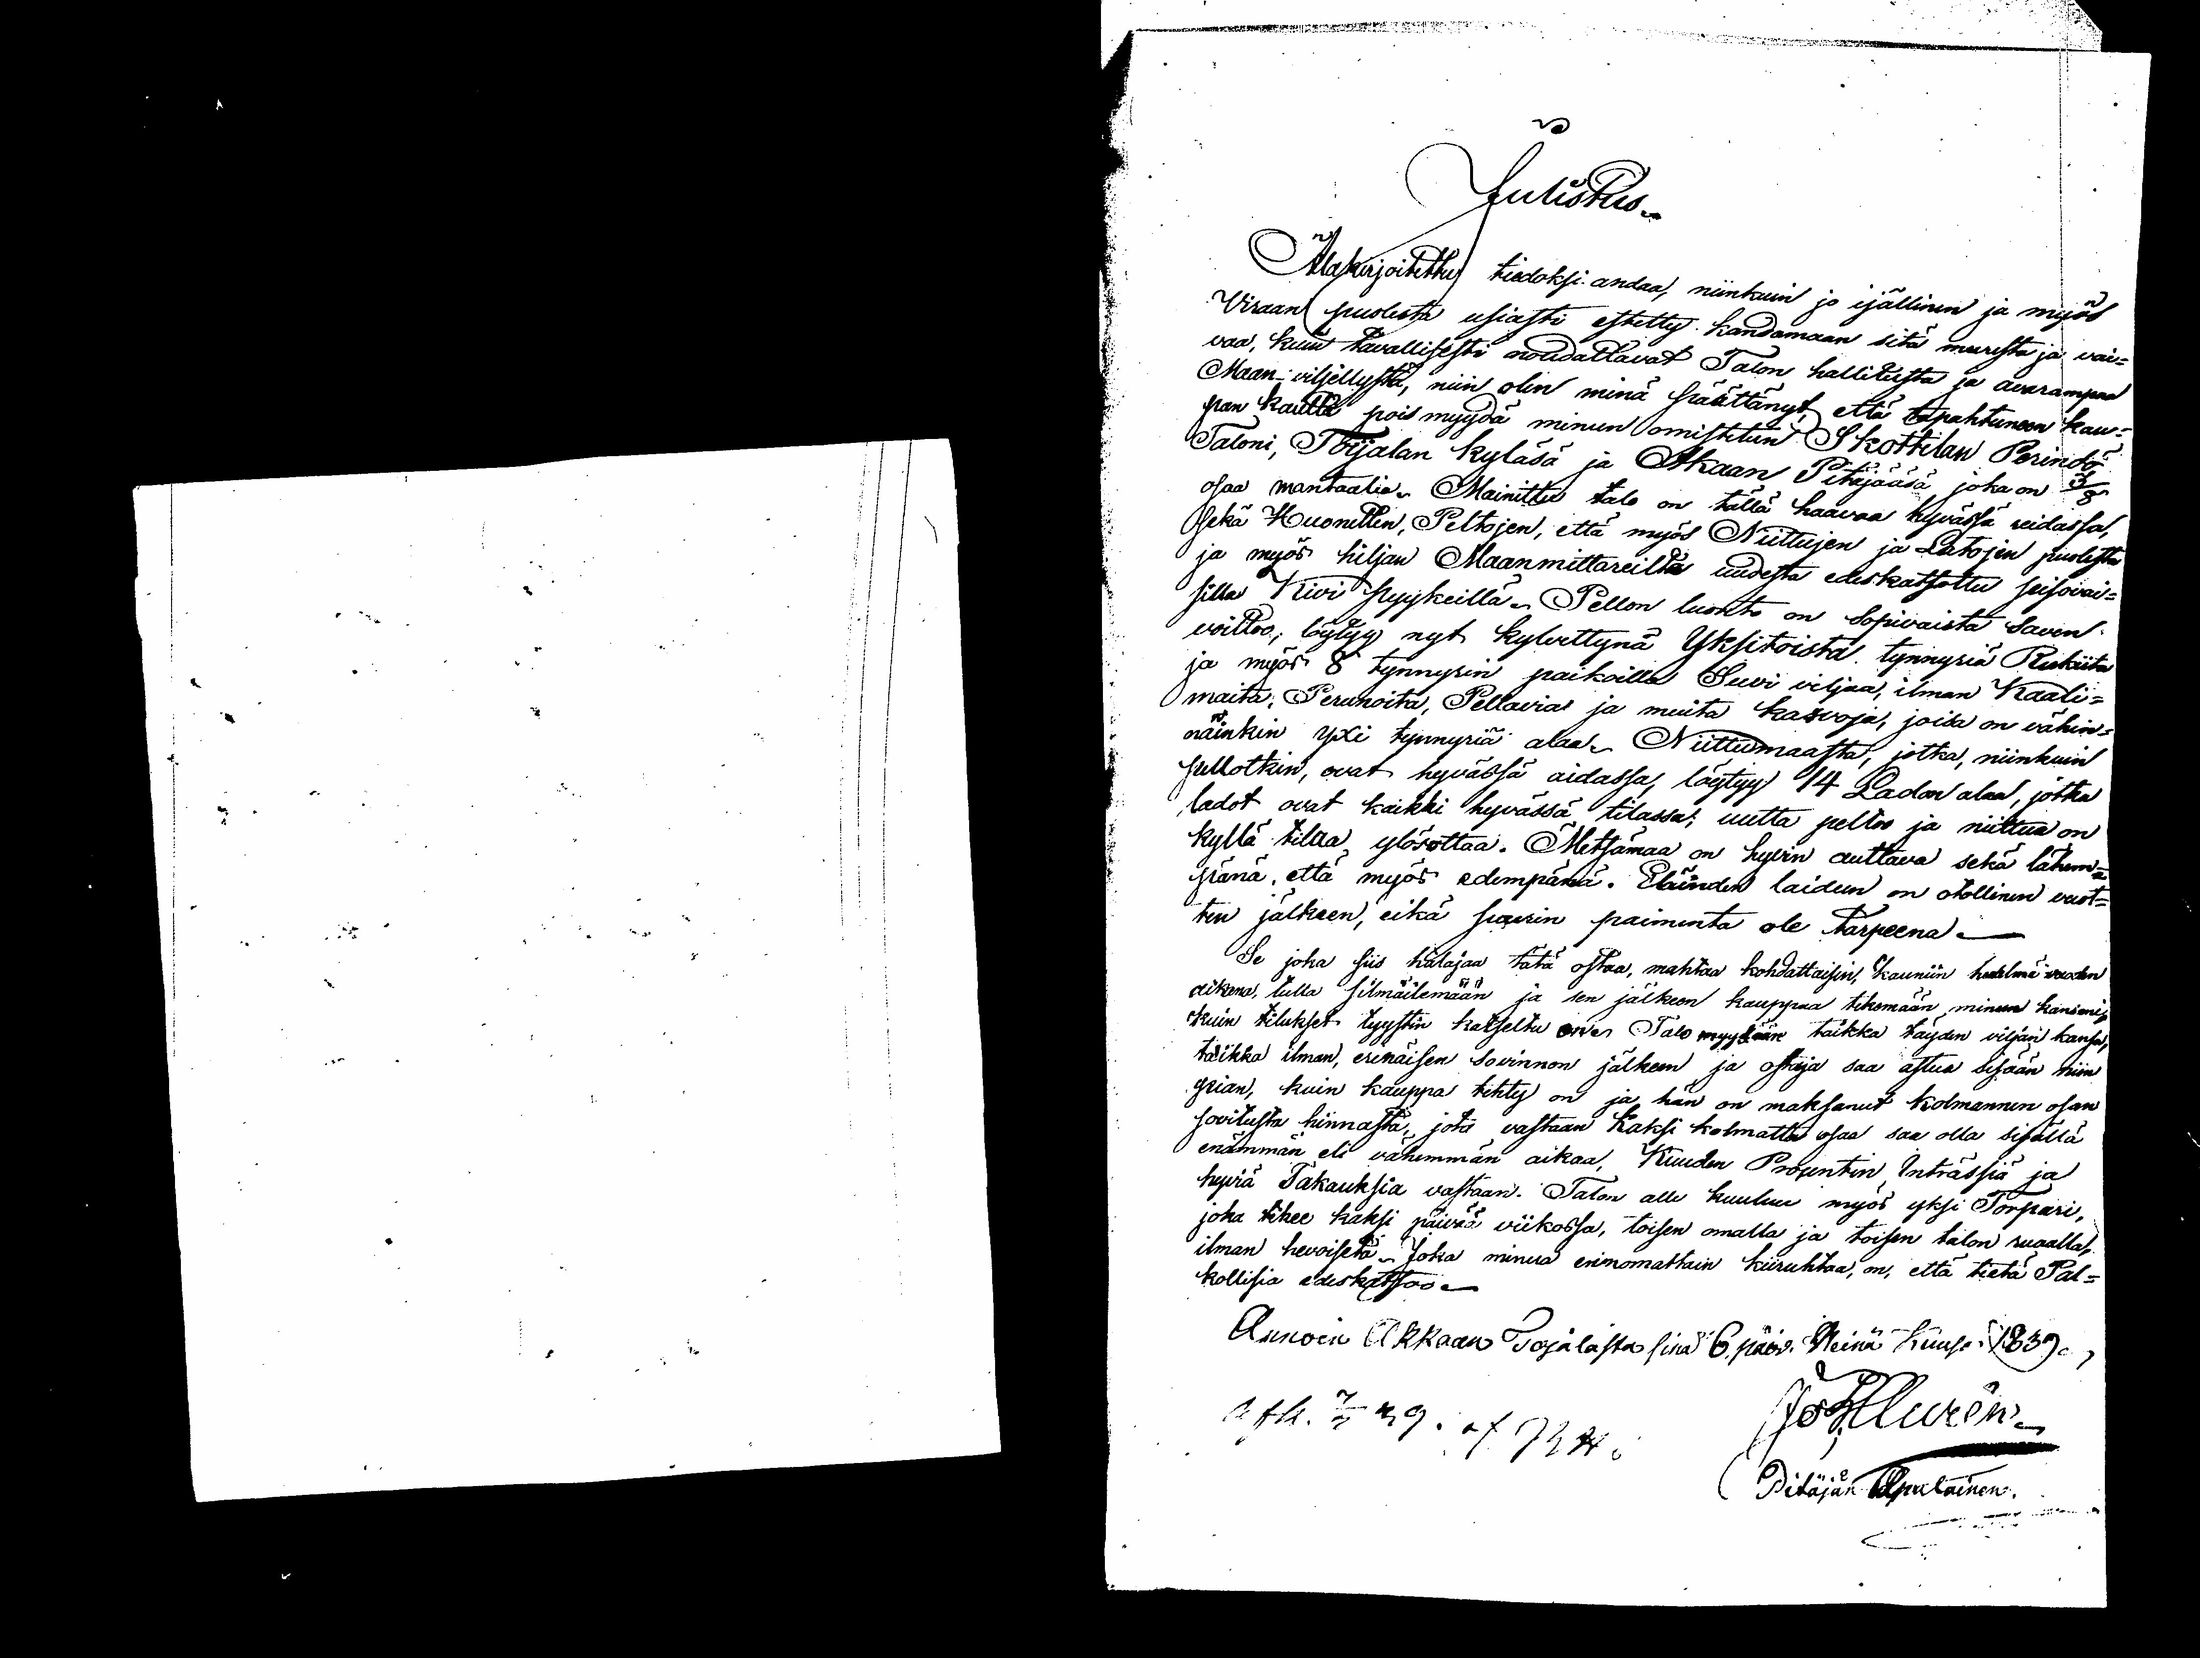 Julistus
Allakirjoitettu tiedoksi andaa, niinkuin jo ijällinen ja myös
Viraan puolesta usiasti estetty kandamaan sitä murehta ja vai=
vaa, kuin tavallisesti noudattavat Talon hallitusta ja avarampaa
Maan-viljellystä, niin olin minä päättänyt, että tapahtuneen kau=
pan kautta pois myydä minun omistetun Skottilan Perindö
Taloni, Toijalan kyläsä ja Akaan Pitäjääsä joka on 3/8
osaa mantaalia. Mainittu talo on tällä haavaa hyvässä reidassa,
sekä Huonetten, Peltojen, että myös Niittujen ja Latojen puolesta
ja myös hiljan Maanmittareilta uudesta edeskatsottu seisovai=
silla Kivi pyykeillä. Pellon luonto on sopivaista Saven
voittoo, löytyy nyt kylvettynä Yksitoista tynnyriä Rukiita
ja myös 8 tynnyrin paikoilla Suvi viljaa, ilman Kaali=
maita, Perunoita, Pellavia ja muita kasvoja, joisa on vähin=
näinkin yxi tynnyriä alaa. Niittumaasta, jotka, niinkuin
pellotkin, ovat hyvässä aidassa, löytyy 14 Ladon alaa, jotka
ladot ovat kaikki hyvässä tilassa; uutta peltoo ja niittua on
kyllä tilaa ylösottaa. Metsämaa on hyvin auttava sekä lähem=
pänä, että myös edempänä. Eläinden laidun on otollinen vuot=
ten jälkeen, eikä suurin paimenta ole tarpeena.
Se joka siis halajaa tätä ostaa, mahtaa kohdattaisin, kauniin hedelmä vuoden
aikana, tulla silmäilemään ja sen jälkeen kauppaa tekemään minun kansani,
kuin tilukset tyystin katseltu on. Talo myydään taikka täyden viljan kansa,
taikka ilman, erinäisen sovinnon jälkeen ja ostaja saa astua sisään niin
pian, kuin kauppa tehty on ja hän on maksanut kolmannen osan
sovitusta hinnasta, jota vastaan kaksi kolmatta osaa saa olla sisällä
enämmän eli vähemmän aikaa, Kuuden Prosentin Inträssiä ja
hyviä Takauksia vastaan. Talon alle kuuluu myös yksi Torpari,
joka tekee kaksi päivää viikossa, toisen omalla ja toisen talon ruaalla,
ilman hevoiseta. Joka minua erinomattain kiiruhtaa, on, että tietä Pal=
kollisia edeskatsoo.
Annoin Akkaan Tojalasta sinä 6. päiv. Heinä Kuusa 1839.
Pitäjän Apulainen.